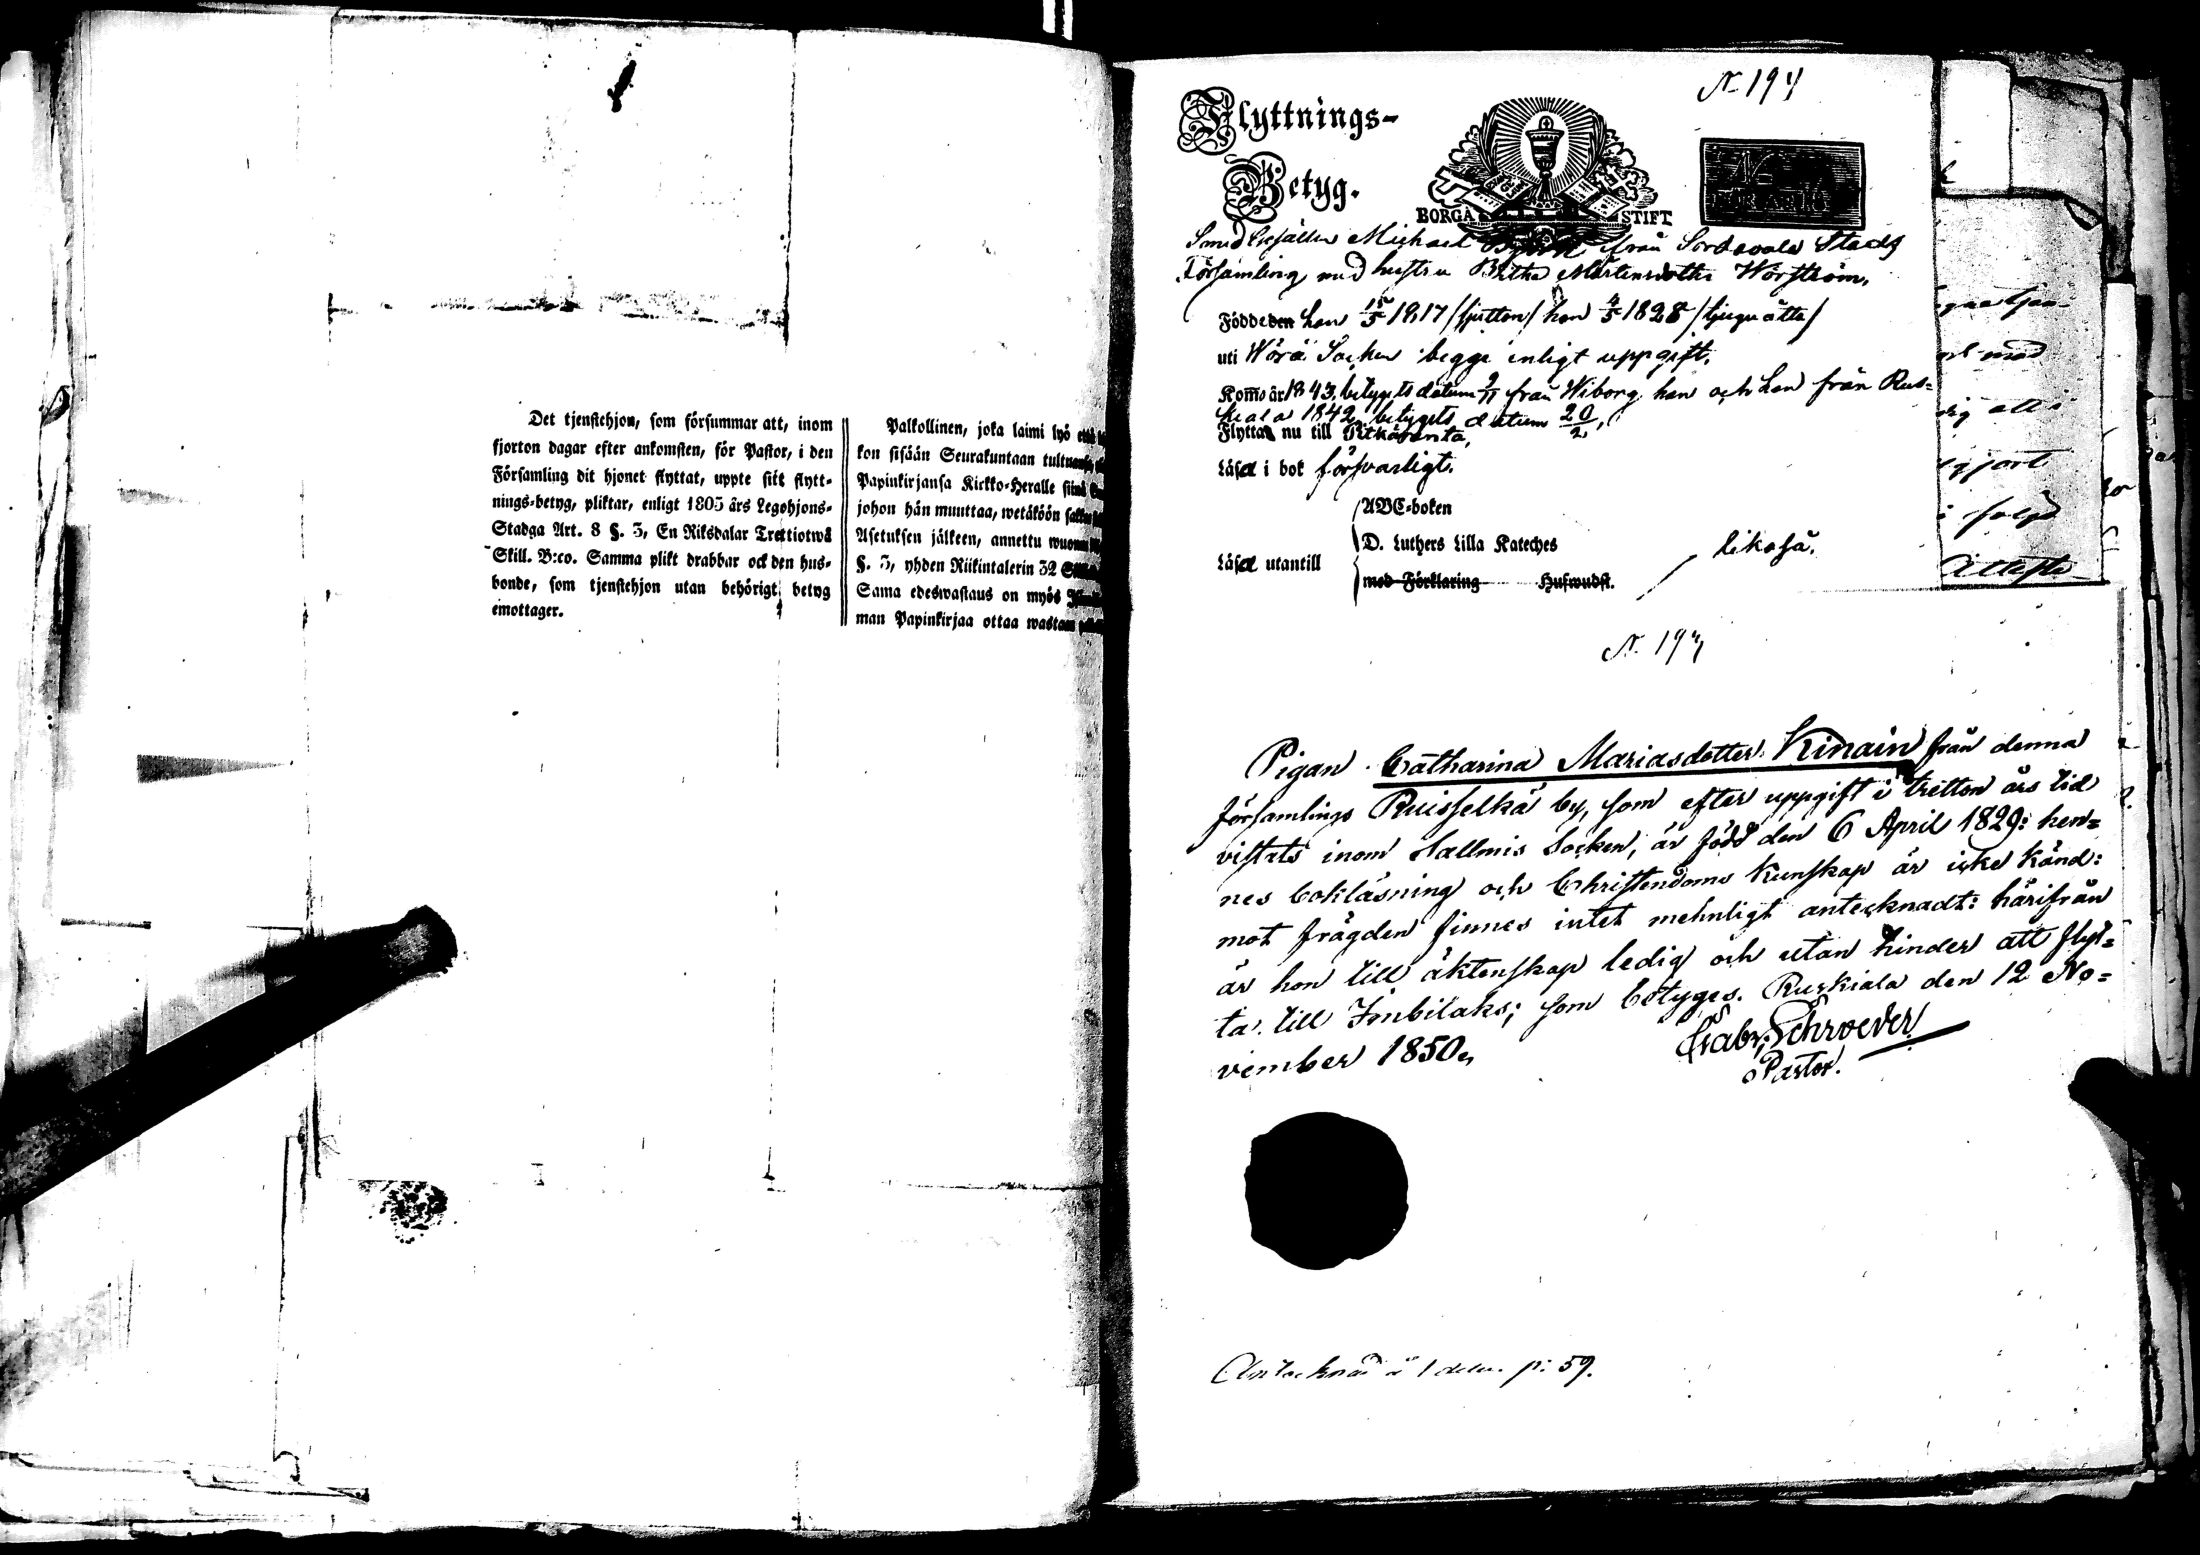 Det tjenstehjon, som försummar att, inom
fjorton dagar efter ankomsten, för Pastor, i den
Församling dit hjonet flyttat, uppte sitt flytt-
nings-betyg, pliktar, enligt 1805 års Legohjons-
Stadga Art. 8 §. 3, En Riksdalar Trettiotwå
Skill. B:co. Samma plikt drabbar ock den hus-
bonde, som tjenstehjon utan behörigt betyg
emottager.
Palkollinen, joka laimi lyö
kon sisään Seurakuntaan
Papinkirjansa Kirkko-Heralle
johon hän muuttaa, wetäköön
Asetuksen jälkeen, annettu
§. 3, yhden Riikintalerin 32
Sama edeswastaus on myös
man Papinkirjaa ottaa
N. 194
Flyttnings-
Betyg.
BORGÅ STIFT
Smed Gesällen Michael från Sordavala Stads
Församling med hustru Britha Mårtensdotter Wörström,
Födde den han 15/5 1817 /sjutton/ hon 4/5 1828 /tjuguåtta/
uti Wörå Socken begge enligt uppgift.
Koms år 1843, betygets datum 9/11 från Wiborg han och hon från Rus=
keala 1842, betygets datum 20/2,
Flytta nu till Pitkäranta,
Läsa i bok försvarligt.
ABC-boken
D. Luthers Lilla Kateches
Läsa utantill
likaså.
med Förklaring Huswudst.
N. 194
Pigan Catharina Mariasdotter Kinain från denna
församlings Ruisselkä by, som efter uppgift i tretton års tid
vistats inom Sallmis Socken, är född den 6 April 1829: hen=
nes bokläsning och Christendoms kunskap är icke känd:
mot frägden finnes intet mehnligt antecknadt: härifrån
är hon till äktenskap ledig och utan hinder att flyt=
ta till Imbilaks; som betyges. Ruskiala den 12 No=
vember 1850,
Gabr. Schroeder
Pastor.
Antecknad i 1 delen p: 59.